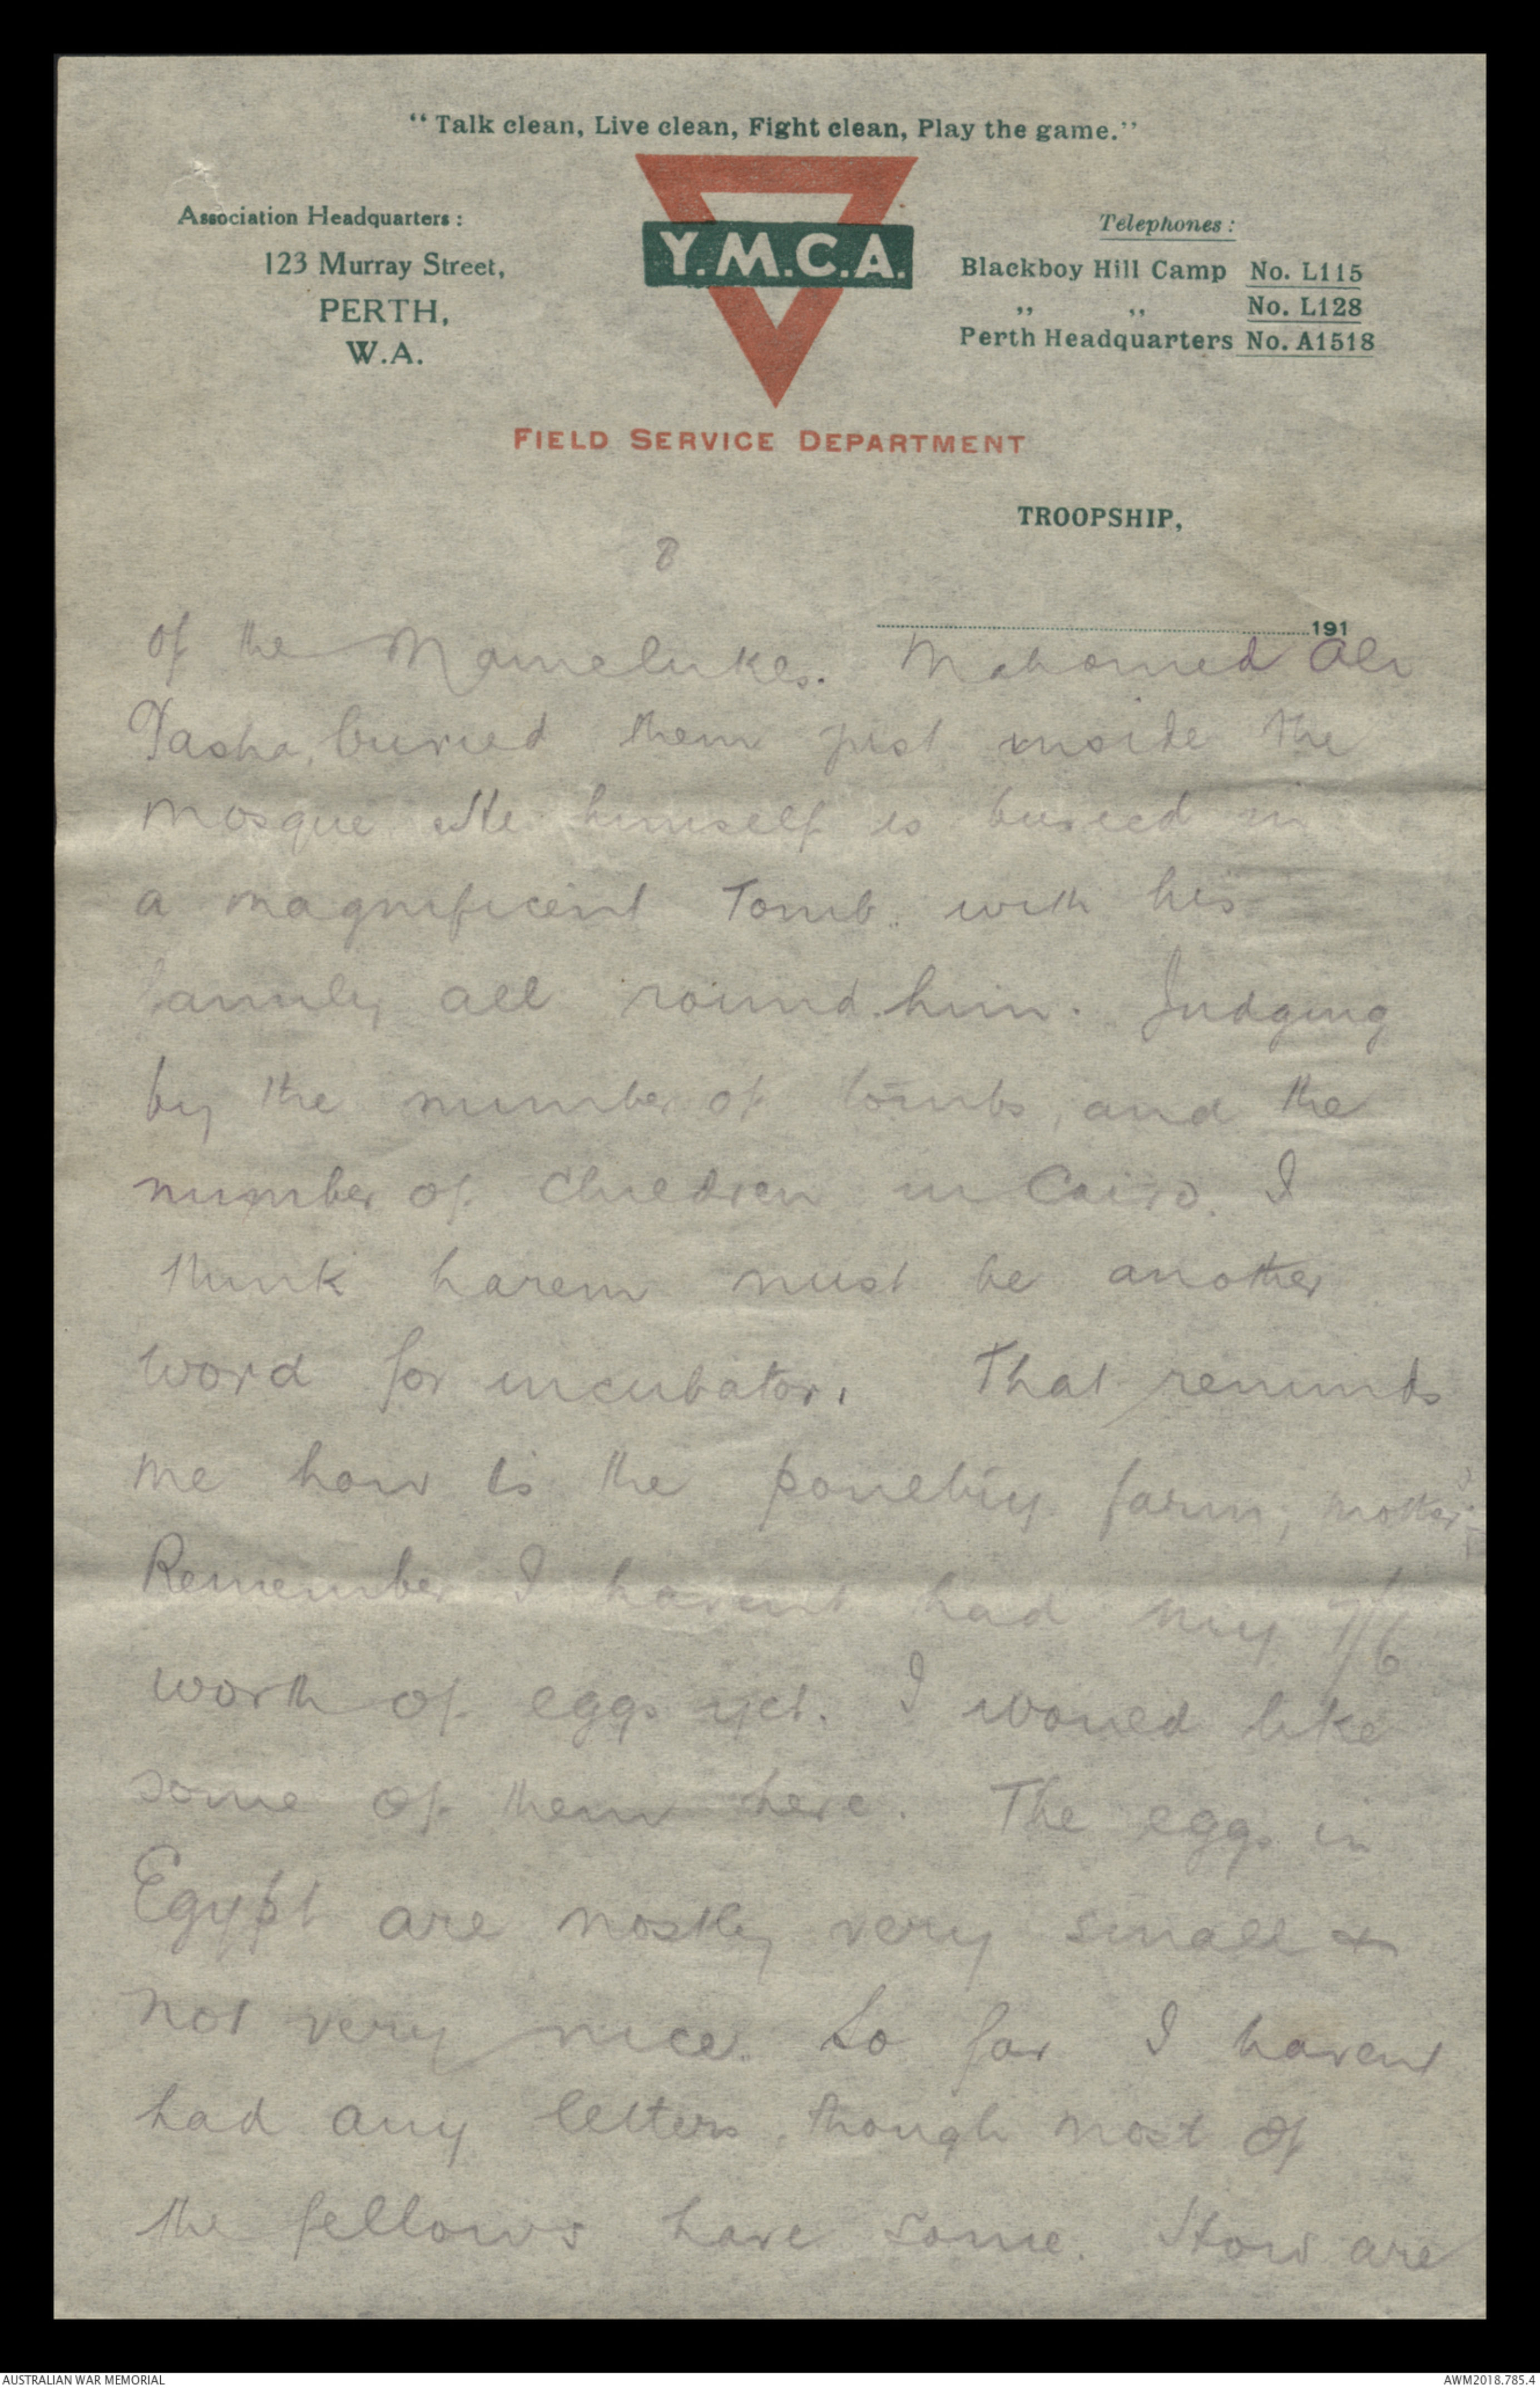 “Talk clean, Live clean, Fight clean, Play the game.”
Association Headquarters :
123 Murray Street,
PERTH,
W.A.
Y.M.C.A.
Telephones :
Blackboy Hill Camp No. L115
,, ,, No. L128
Perth Headquarters No. A1518
FIELD SERVICE DEPARTMENT
TROOPSHIP,
8
191
of the Mamelukes. Mahomed Ali
Pasha, buried them just inside the
mosque. He himself is buried in
a magnificent Tomb. with his
family all round him. Judging
by the number of tombs, and the
number of children in Cairo. I
think harem must be another
word for incubator. That reminds
me how is the poultry farm, mother?
Remember I havent had my 7/6
worth of eggs yet. I would like
some of them here. The eggs in
Egypt are mostly very small &
not very nice. So far I havent
had any letters, though most of
the fellows have some. How are
AUSTRALIAN WAR MEMORIAL
AWM2018.785.4